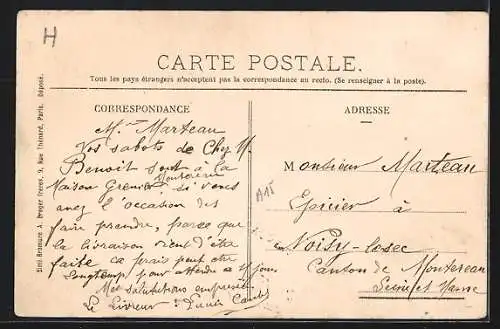 H
CARTE POSTALE.
Tous les pays étrangers n'acceptent pas la correspondance au recto. (Se renseigner à la poste).
CORRESPONDANCE
M. Marteau
Vos sabots de Chez M.
Benoit sont à la
Maison Grenier Montereau si vous
avez l'occasion des
faire prendre, parce que
la livraison vient d'être
faite ça peut être
longtemps pour attendre à jours
Mes salutations empressées
Le Livreur :
ADRESSE
Monsieur Marteau
Epicier à
Noisy-le-sec
Canton de Montereau
Seine et Marne
A15
Simi-Bromure A. Breger frères, 9, Rue Thénard, Paris. Déposé.